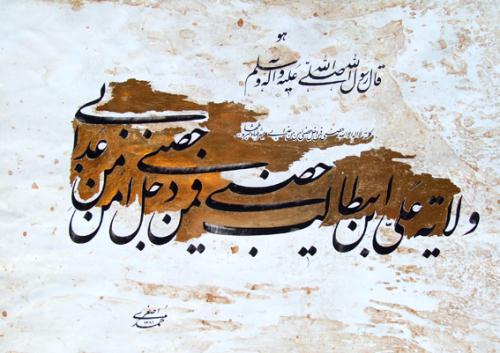 هو
قال رسول الله صلی الله علیه وآله وسلم
ولایة علی ابن ابیطالب حصنی فمن دخل حصنی امن من عذابی